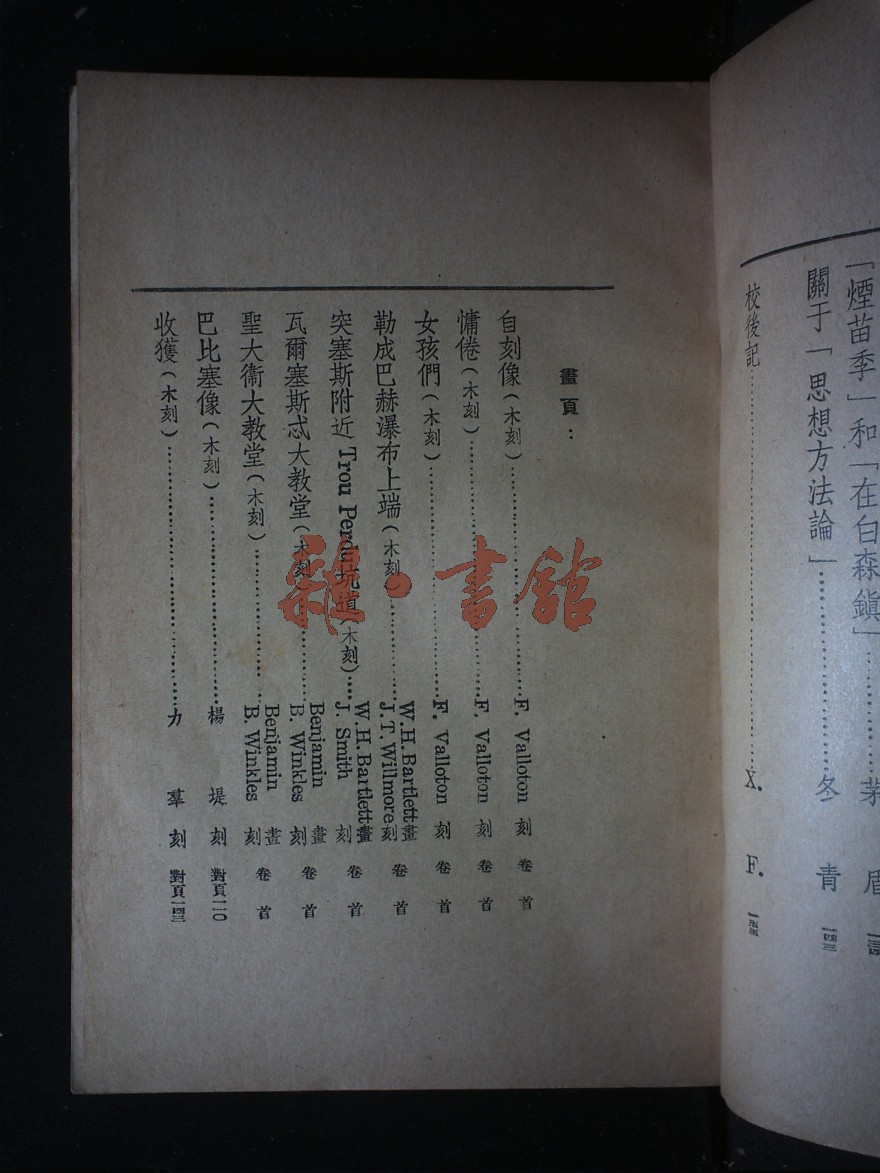 「煙苗季」和「在白森鎮」……茅 盾
關于「思想方法論」……冬 青 一四三
校後記……X. F. 一五五
畫頁：
自刻像（木刻）……F. Valloton 刻 卷首
慵倦（木刻）……F. Valloton 刻 卷首
女孩們（木刻）……F. Valloton 刻 卷首
勒成巴赫瀑布上端（木刻）……W.H.Bartlett畫 J.T.Willmore刻 卷首
突塞斯附近 Trou Perdu坑道（木刻）……W.H.Bartlett畫 J. Smith 刻 卷首
瓦爾塞斯忒大教堂（木刻）……Benjamin 畫 B. Winkles 刻 卷首
聖大衞大教堂（木刻）……Benjamin 畫 B. Winkles 刻 卷首
巴比塞像（木刻）……楊 堤 刻 對頁一一〇
收獲（木刻）……力 羣 刻 對頁一四三
雜·書館